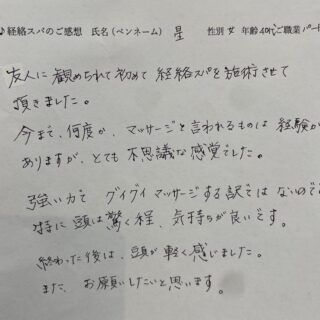 ♪経絡スパのご感想 氏名(ペンネーム) 星 性別 女 年齢 40代 ご職業 パー
友人に観められて初めて経絡スパを施術させて
頂きました。
今まで、何度か、マッサージと言われるものは経験が
ありますが、とても不思議な感覚でした。
強い力で グイグイ マッサージする訳ではないので
特に頭は驚く程、気持ちが良いです。
終わった後は、頭が軽く感じました。
また、お願いしたいと思います。